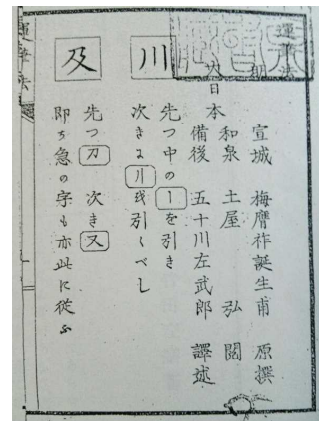 宣城 梅膺祚誕生甫 原撰
日本
和泉 土屋 弘 閲
備後 五十川左武郎 譯述
川
先つ中の丨を引き
次きに川を引くべし
及
先つ刀 次き又
即ち急の字も亦此に従ふ
運筆法